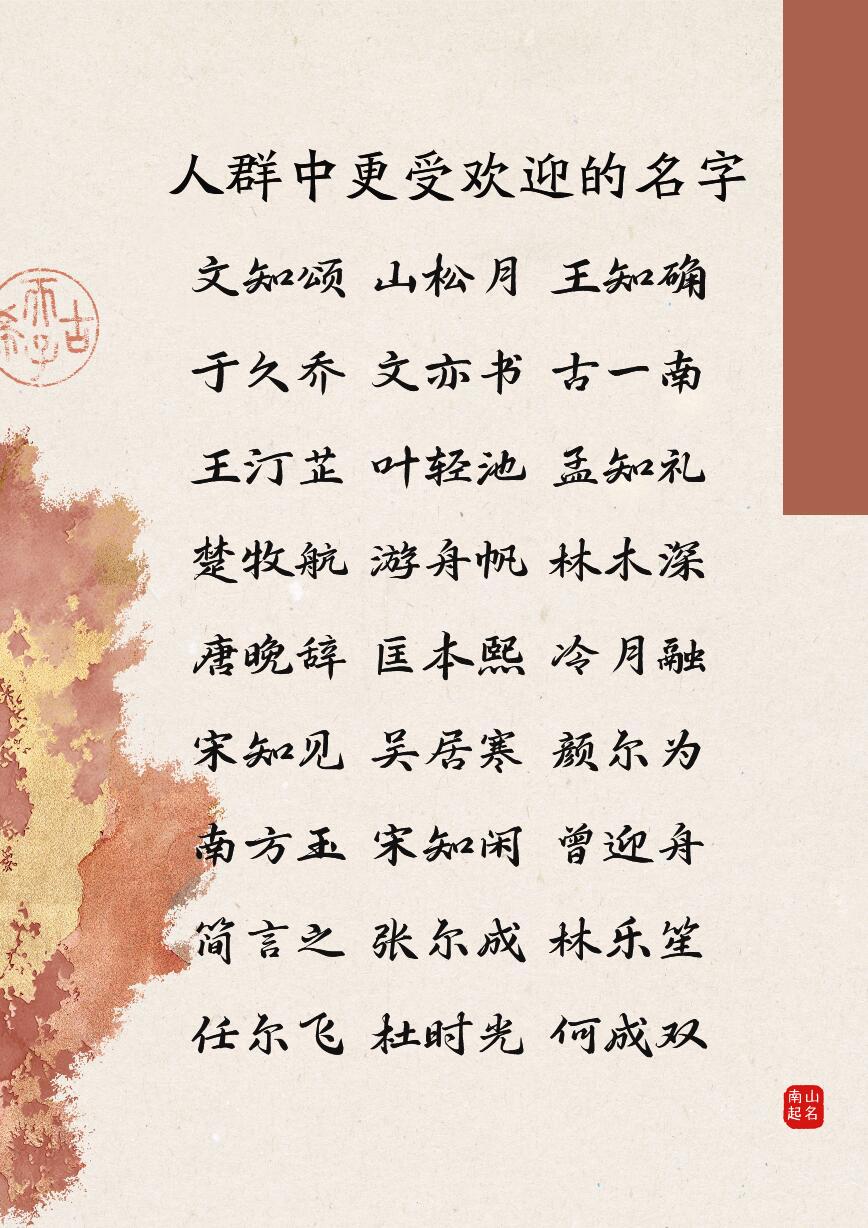 人群中更受欢迎的名字
文知颂 山松月 王知确
于久乔 文亦书 古一南
王汀芷 叶轻池 孟知礼
楚牧航 游舟帆 林木深
唐晚辞 匡本熙 冷月融
宋知见 吴居寒 颜尔为
南方玉 宋知闲 曾迎舟
简言之 张尔成 林乐笙
任尔飞 杜时光 何成双
南山
起名